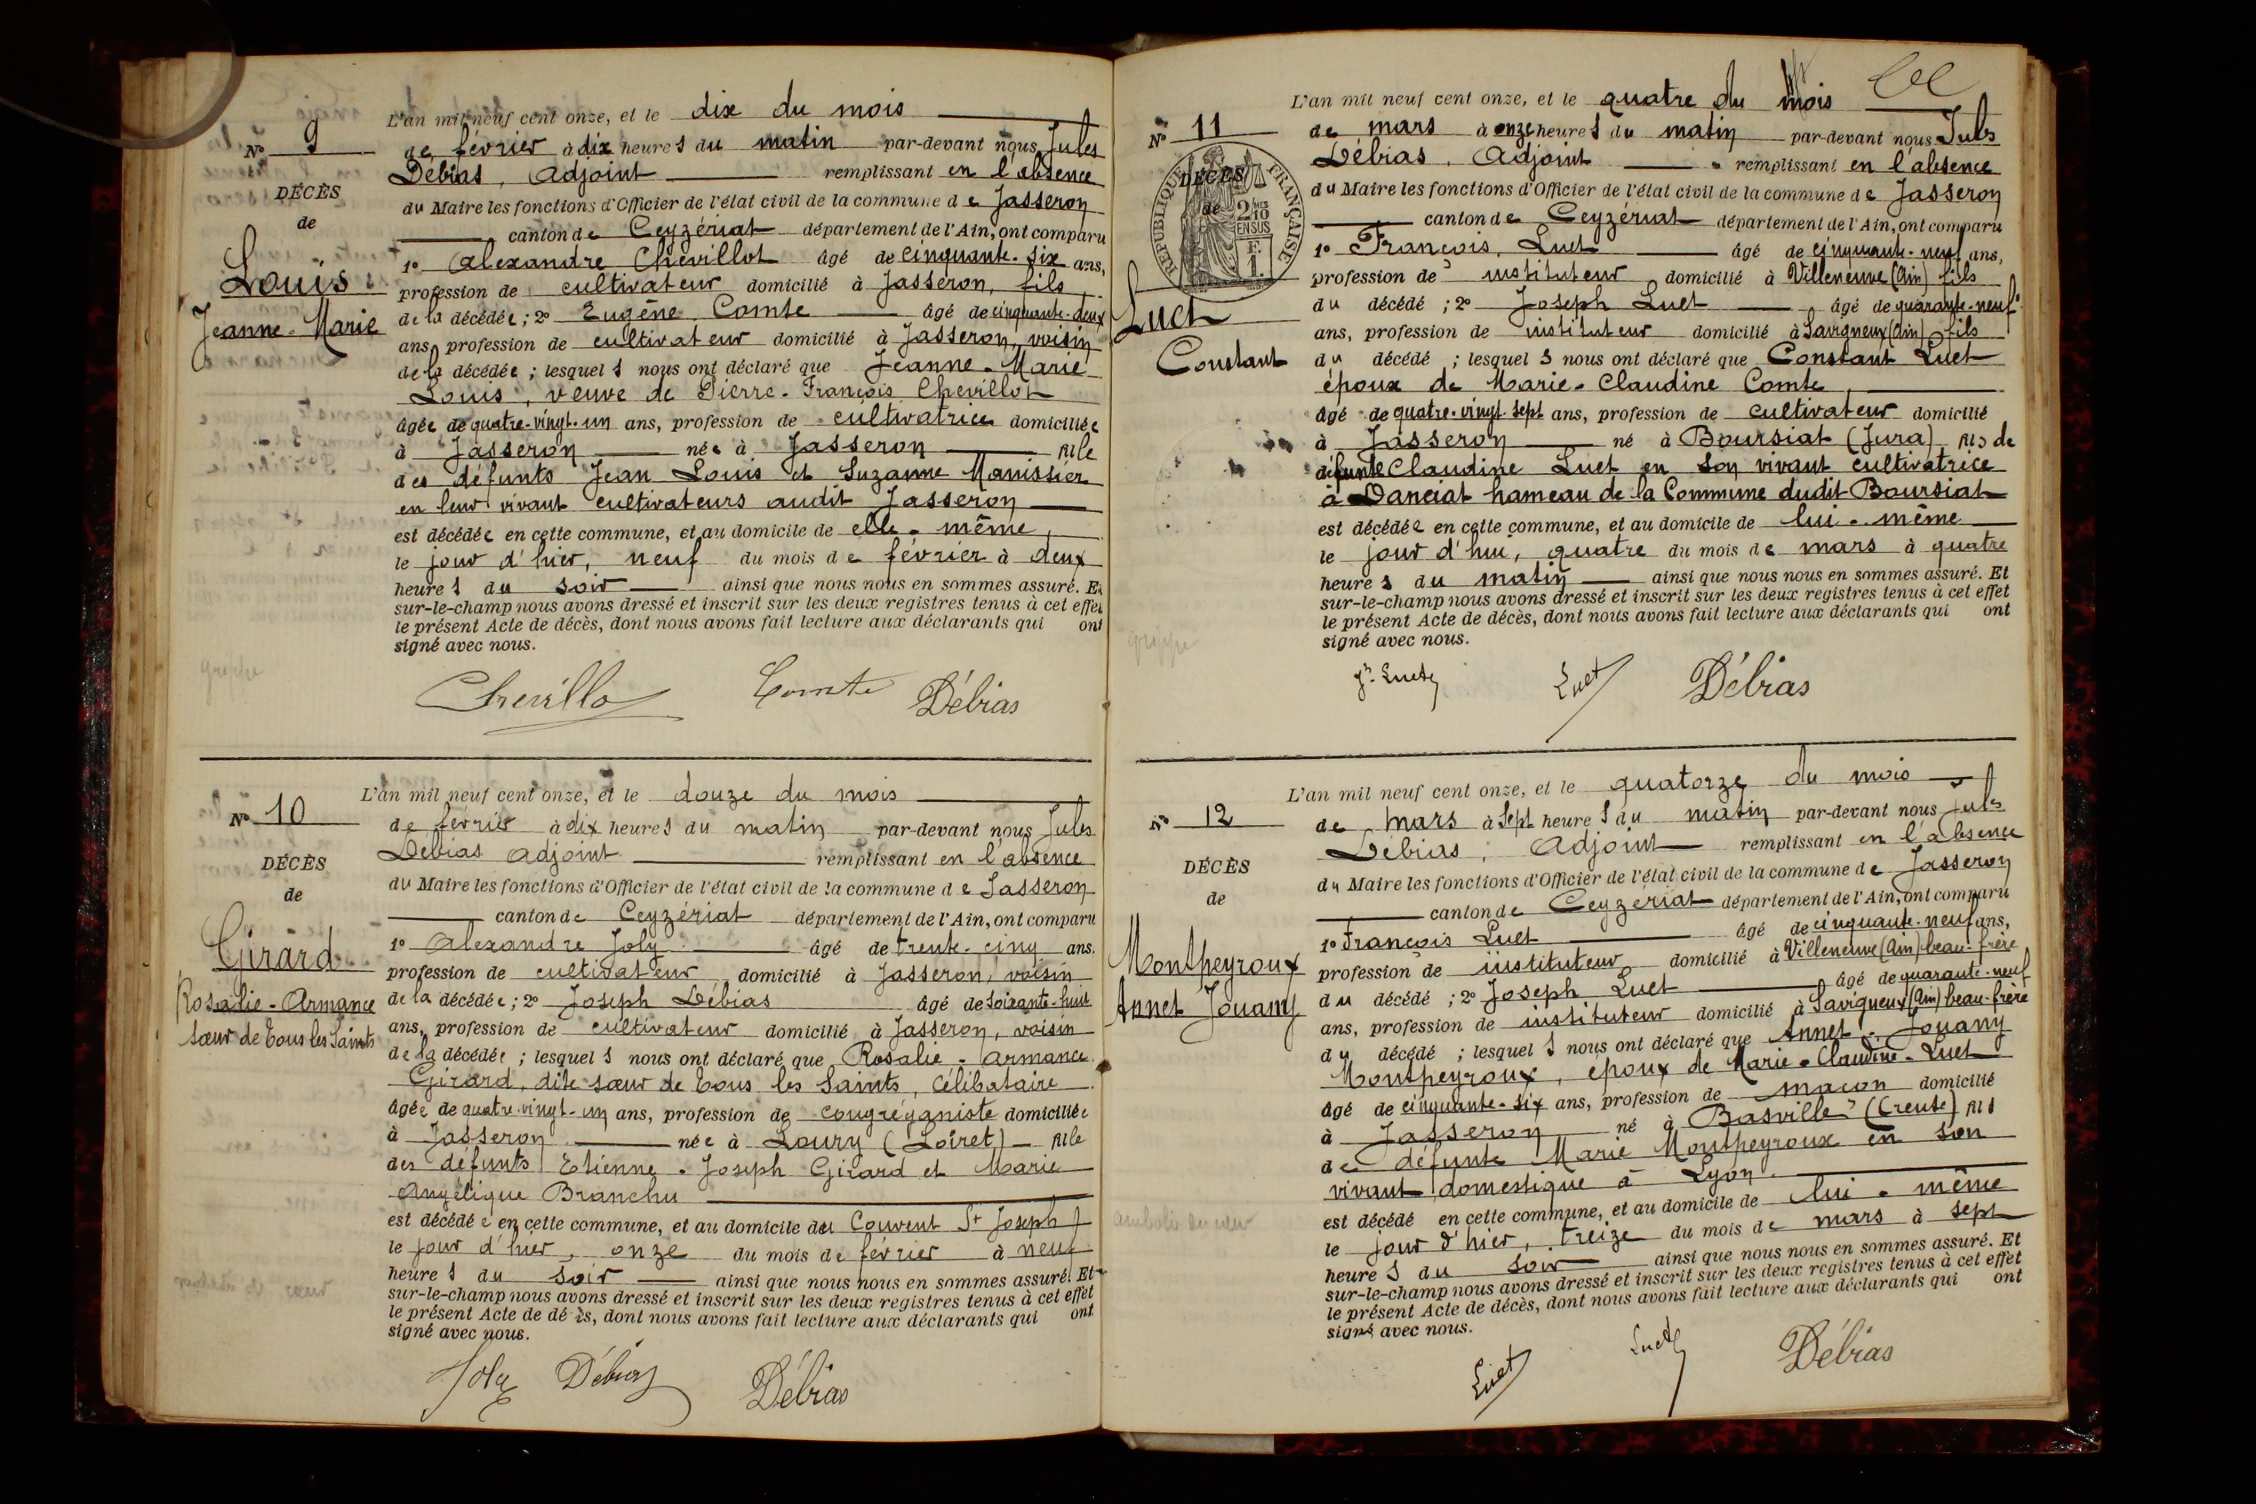 L'an mil neuf cent onze, et le dix du mois
N° 9
de février à dix heures du matin par-devant nous Jules
Débias, Adjoint remplissant en l'absence
DÉCÈS
du Maire les fonctions d'Officier de l'état civil de la commune de Jasseron
de
canton de Ceyzériat département de l'Ain, ont comparu
Louis
Jeanne-Marie
1° Alexandre Chevillot âgé de cinquante-six ans,
profession de cultivateur domicilié à Jasseron, fils
de la décédée; 2° Eugène Comte âgé de cinquante-deux
ans, profession de cultivateur domicilié à Jasseron, voisin
de la décédée; lesquels nous ont déclaré que Jeanne-Marie
Louis, veuve de Pierre-François Chevillot
âgée de quatre-vingt-un ans, profession de cultivatrice domiciliée
à Jasseron née à Jasseron fille
des défunts Jean Louis et Suzanne Manissier
en leur vivant cultivateurs audit Jasseron
est décédée en cette commune, et au domicile de elle-même
le jour d'hier, neuf du mois de février à deux
heures du soir ainsi que nous nous en sommes assuré. Et
sur-le-champ nous avons dressé et inscrit sur les deux registres tenus à cet effet
le présent Acte de décès, dont nous avons fait lecture aux déclarants qui ont
signé avec nous.
Chevillo Comte Débias
L'an mil neuf cent onze, et le douze du mois
N° 10
de février à dix heures du matin par-devant nous Jules
Débias adjoint remplissant en l'absence
DÉCÈS
du Maire les fonctions d'Officier de l'état civil de la commune de Jasseron
de
canton de Ceyzériat département de l'Ain, ont comparu
Girard
Rosalie-Armance
sœur de Tous les Saints
1° Alexandre Joly âgé de trente-cinq ans.
profession de cultivateur domicilié à Jasseron, voisin
de la décédée; 2° Joseph Débias âgé de soixante-huit
ans, profession de cultivateur domicilié à Jasseron, voisin
de la décédée; lesquels nous ont déclaré que Rosalie-Armance
Girard, dite sœur de Tous les Saints, célibataire
âgée de quatre-vingt-un ans, profession de congréganiste domiciliée
à Jasseron née à Loury (Loiret) fille
des défunts Etienne-Joseph Girard et Marie
Angélique Branchu
est décédée en cette commune, et au domicile du Couvent St Joseph
le jour d'hier, onze du mois de février à neuf
heures du soir ainsi que nous nous en sommes assuré. Et
sur-le-champ nous avons dressé et inscrit sur les deux registres tenus à cet effet
le présent Acte de dé ès, dont nous avons fait lecture aux déclarants qui ont
signé avec nous.
Joly Débias Débias
L'an mil neuf cent onze, et le quatre du mois
N° 11
de mars à onze heures du matin par-devant nous Jules
Débias, Adjoint remplissant en l'absence
DÉCÈS
du Maire les fonctions d'Officier de l'état civil de la commune de Jasseron
de
RÉPUBLIQUE FRANÇAISE
2/10 EN SUS
canton de Ceyzériat département de l'Ain, ont comparu
Luet
Constant
1° François Luet âgé de cinquante-neuf ans,
profession de instituteur domicilié à Villeneuve (Ain) fils
du décédé; 2° Joseph Luet âgé de quarante-neuf
ans, profession de instituteur domicilié à Savigneux (Ain) fils
du décédé; lesquels nous ont déclaré que Constant Luet
époux de Marie-Claudine Comte
âgé de quatre-vingt-sept ans, profession de cultivateur domicilié
à Jasseron né à Boursiat (Jura) fils de
défunte Claudine Luet en son vivant cultivatrice
à Danciat hameau de la Commune dudit Boursiat
est décédée en cette commune, et au domicile de lui-même
le jour d'hui, quatre du mois de mars à quatre
heures du matin ainsi que nous nous en sommes assuré. Et
sur-le-champ nous avons dressé et inscrit sur les deux registres tenus à cet effet
le présent Acte de décès, dont nous avons fait lecture aux déclarants qui ont
signé avec nous.
grippe
Luet Luet Débias
L'an mil neuf cent onze, et le quatorze du mois
N° 12
de mars à sept heures du matin par-devant nous Jules
Débias, Adjoint remplissant en l'absence
DÉCÈS
du Maire les fonctions d'Officier de l'état civil de la commune de Jasseron
de
canton de Ceyzériat département de l'Ain, ont comparu
Montpeyroux
Annet Jouany
1° François Luet âgé de cinquante-neuf ans,
profession de instituteur domicilié à Villeneuve (Ain) beau-frère
du décédé; 2° Joseph Luet âgé de quarante-neuf
ans, profession de instituteur domicilié à Savigneux (Ain) beau-frère
du décédé; lesquels nous ont déclaré que Annet-Jouany
Montpeyroux, époux de Marie-Claudine-Luet
âgé de cinquante-six ans, profession de maçon domicilié
à Jasseron né à Basville (Creuse) fils
de défunte Marie Montpeyroux en son
vivant domestique à Lyon
est décédé en cette commune, et au domicile de lui-même
le jour d'hier, treize du mois de mars à sept
heures du soir ainsi que nous nous en sommes assuré. Et
sur-le-champ nous avons dressé et inscrit sur les deux registres tenus à cet effet
le présent Acte de décès, dont nous avons fait lecture aux déclarants qui ont
signé avec nous.
Luet Luet Débias